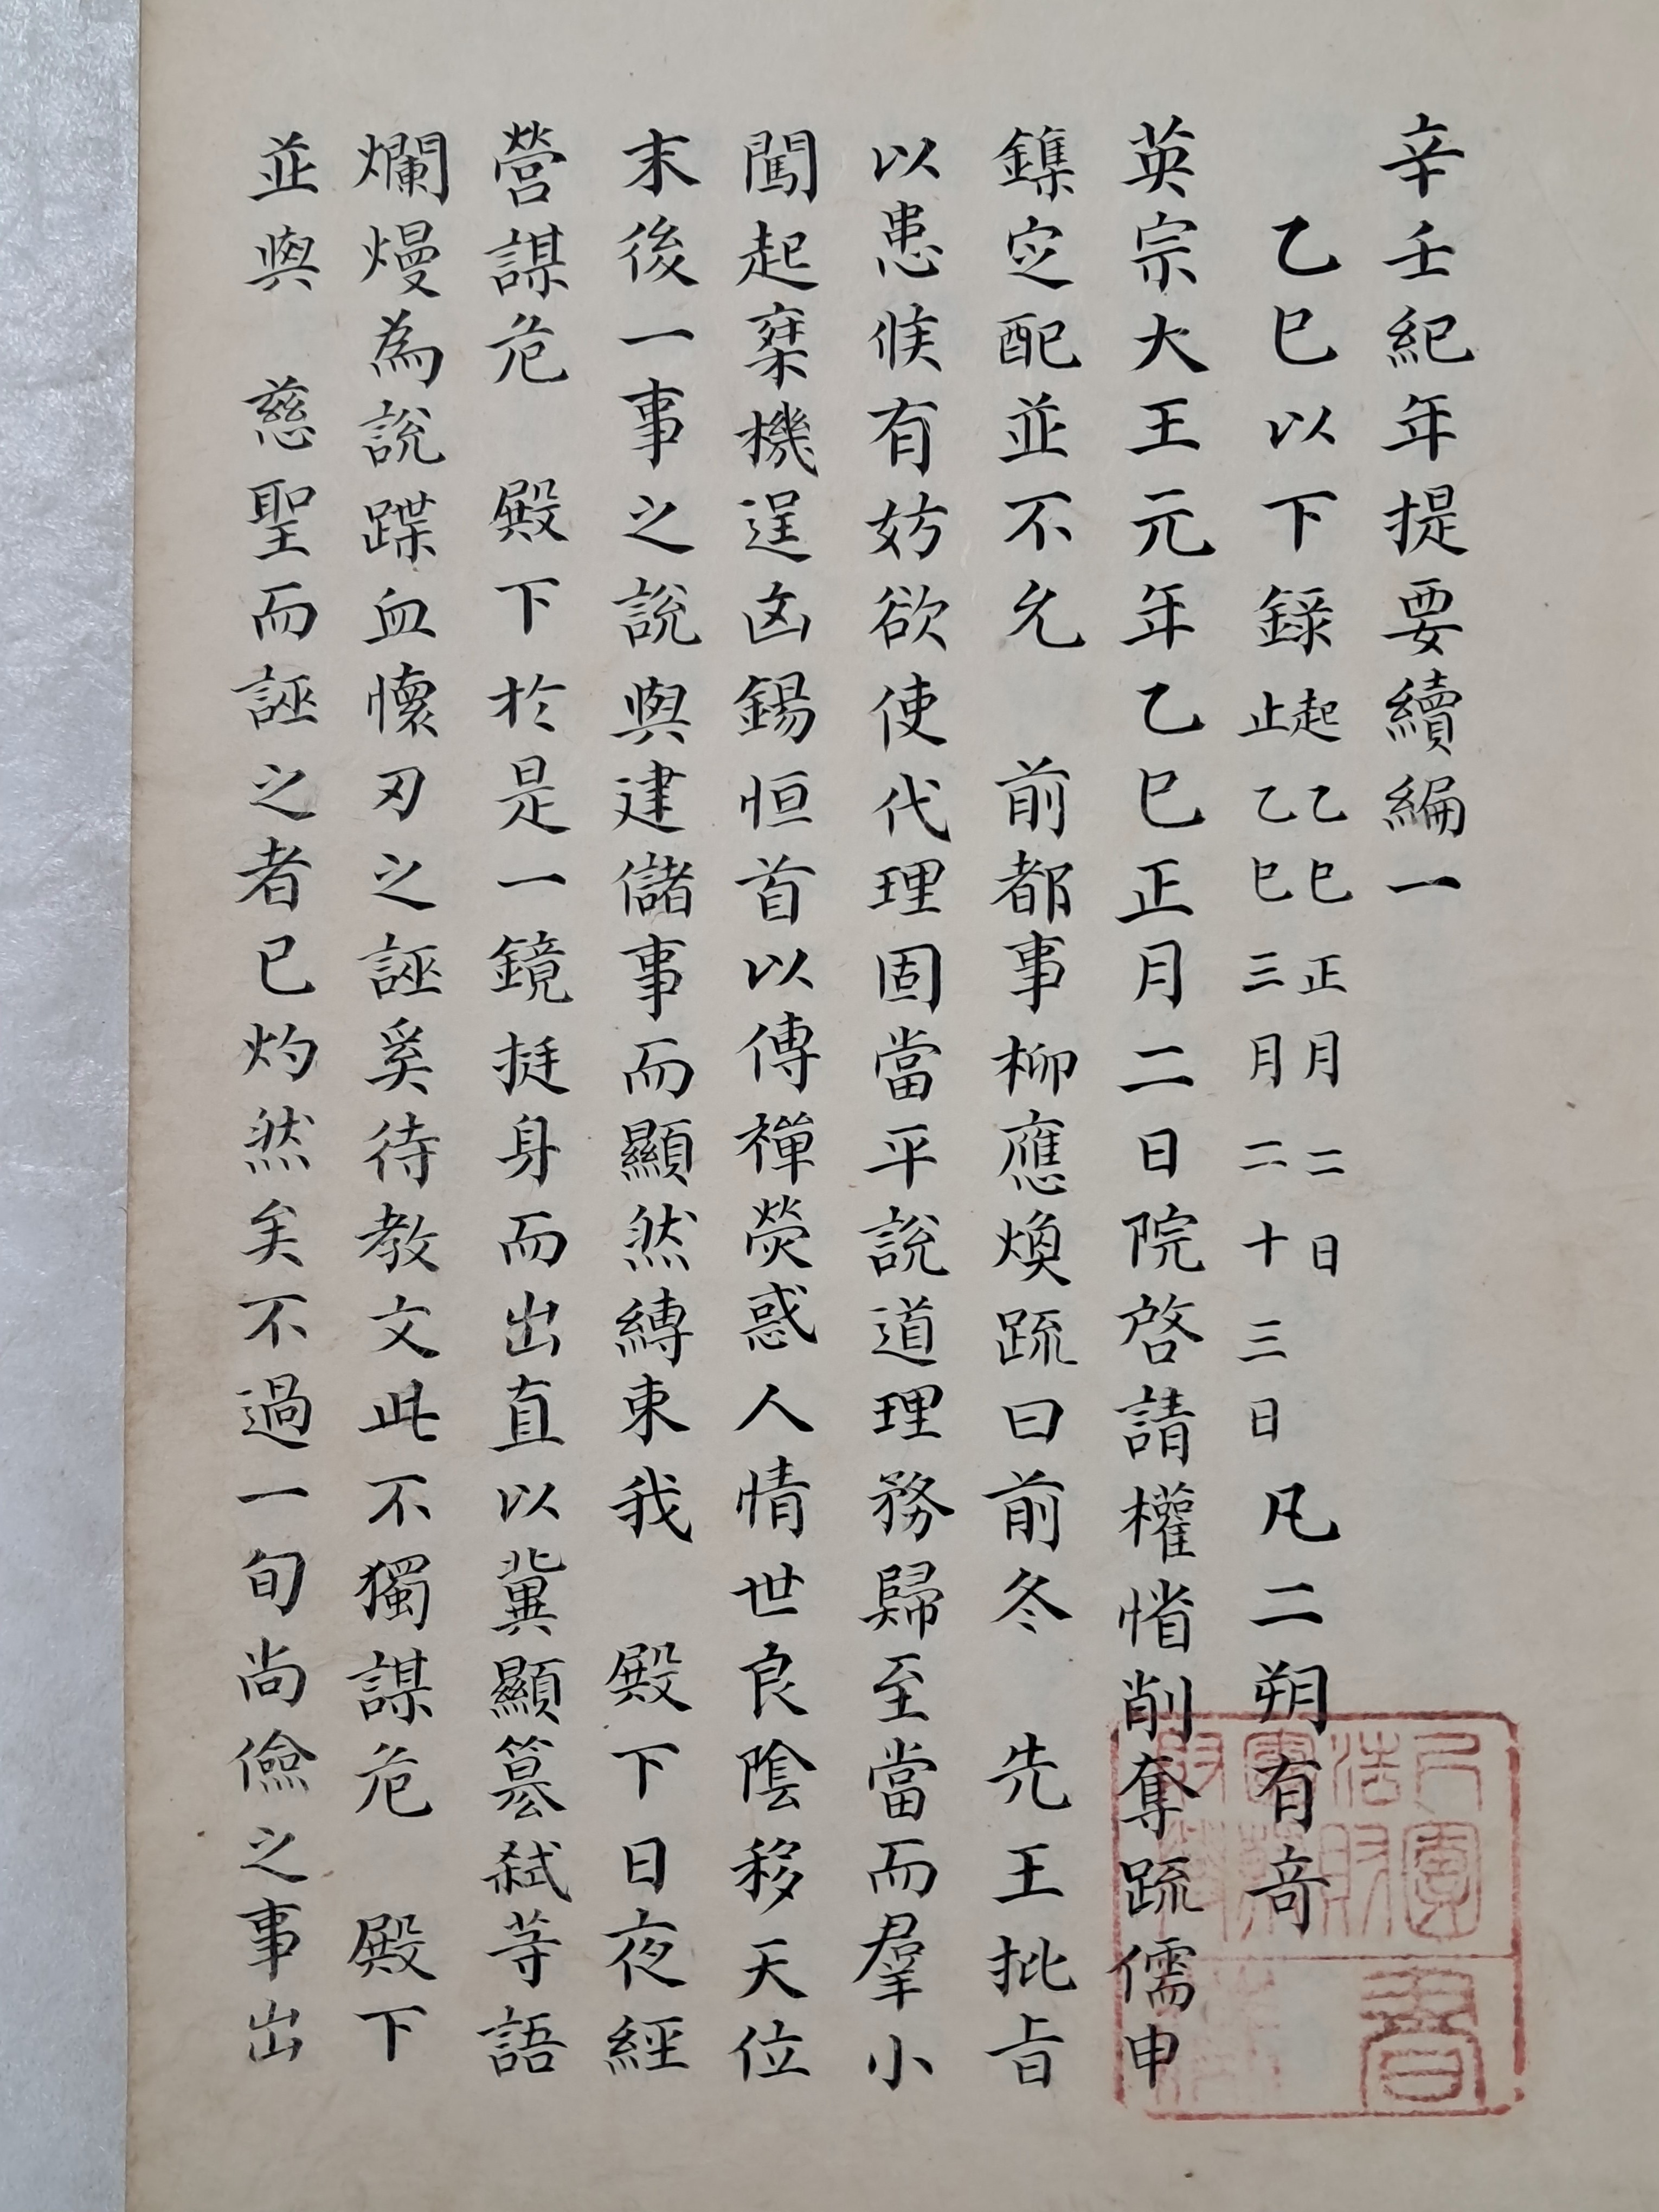 辛壬紀年提要續編一
乙巳以下錄起乙巳正月二日止乙巳三月二十三日凡二朔有奇
英宗大王元年乙巳正月二日院啓請權㥠削奪疏儒申
鏶㝎配並不允　前都事柳應煥疏曰前冬　先王批旨
以患候有妨欲使代理固當平說道理務歸至當而羣小
闖起棄機逞凶錫恒首以傳禪熒惑人情世良陰移天位
末後一事之說與建儲事而顯然縛束我　殿下日夜經
營謀危　殿下於是一鏡挺身而出直以冀顯簒弑等語
爛熳為說蹀血懷刃之誣奚待教文此不獨謀危　殿下
並與　慈聖而誣之者已灼然矣不過一旬尚儉之事出